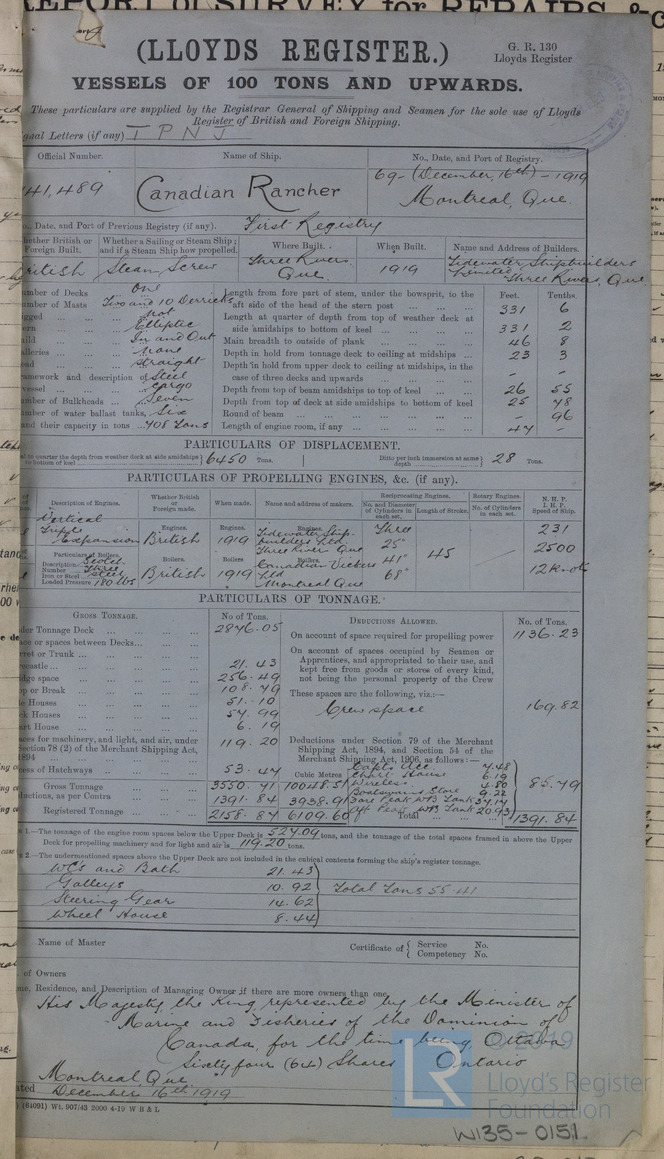 REPORT of SURVEY for REPAIRS, &c
(LLOYDS REGISTER.)
G. R. 130
Lloyds Register
VESSELS OF 100 TONS AND UPWARDS.
These particulars are supplied by the Registrar General of Shipping and Seamen for the sole use of Lloyds
Register of British and Foreign Shipping.
gnal Letters (if any) T P N J
Official Number. Name of Ship. No., Date, and Port of Registry.
41,489 Canadian Rancher 69 - (December, 16th) - 1919
Montreal, Que.
o., Date, and Port of Previous Registry (if any). First Registry
hether British or Foreign Built. Whether a Sailing or Steam Ship; and if a Steam Ship how propelled. Where Built. When Built. Name and Address of Builders.
British Steam Screw Three Rivers Que 1919 Tidewater Shipbuilders Limited Three Rivers, Que
umber of Decks one
umber of Masts Two and 10 Derricks
igged not
ern Elliptic
uild In and Out
alleries none
ead straight
amework and description of Steel
vessel cargo
umber of Bulkheads Seven
umber of water ballast tanks, Six
and their capacity in tons 708 Tons
Feet. Tenths.
Length from fore part of stem, under the bowsprit, to the aft side of the head of the stern post 331 6
Length at quarter of depth from top of weather deck at side amidships to bottom of keel 331 2
Main breadth to outside of plank 46 8
Depth in hold from tonnage deck to ceiling at midships 23 3
Depth in hold from upper deck to ceiling at midships, in the case of three decks and upwards - -
Depth from top of beam amidships to top of keel 26 55
Depth from top of deck at side amidships to bottom of keel 25 78
Round of beam - 96
Length of engine room, if any 47 -
PARTICULARS OF DISPLACEMENT.
at to quarter the depth from weather deck at side amidships to bottom of keel 6450 Tons. Ditto per inch immersion at same depth 28 Tons.
PARTICULARS OF PROPELLING ENGINES, &c. (if any).
Description of Engines. Whether British or Foreign made. When made. Name and address of makers. Reciprocating Engines. Rotary Engines. N. H. P.
No. and Diameter of Cylinders in each set. Length of Stroke. No. of Cylinders in each set. I. H. P. Speed of Ship.
Vertical Triple Expansion Engines. British Engines. 1919 Engines. Tidewater Ship-builders Ltd Three River Que Three 25" 41" 68" 45 231
Particulars of Boilers.
Description Scotch
Number Three
Iron or Steel Steel
Loaded Pressure 180 lbs
Boilers. British Boilers 1919 Boilers. Canadian Vickers Ltd Montreal Que
2500
12 knots
PARTICULARS OF TONNAGE.
GROSS TONNAGE. No of Tons. DEDUCTIONS ALLOWED. No. of Tons.
der Tonnage Deck 2846.05
ace or spaces between Decks
rret or Trunk
recastle 21.43
idge space 256.49
op or Break 108.79
e Houses 51.10
ck Houses 54.99
art House 6.19
aces for machinery, and light, and air, under Section 78 (2) of the Merchant Shipping Act, 1894 119.20
cess of Hatchways 53.47
Cubic Metres
Gross Tonnage 3550.71 10048.51
uctions, as per Contra 1391.84 3938.91
Registered Tonnage 2158.87 6109.60
On account of space required for propelling power 1136.23
On account of spaces occupied by Seamen or Apprentices, and appropriated to their use, and kept free from goods or stores of every kind, not being the personal property of the Crew
These spaces are the following, viz.:—
Crew space 169.82
Deductions under Section 79 of the Merchant Shipping Act, 1894, and Section 54 of the Merchant Shipping Act, 1906, as follows:—
Capts. Acc. 7.48
Chart House 6.19
Wireless 4.80
Boatswains Store 9.22
Fore Peak W B Tank 37.17
Aft Peak WB Tank 20.93
85.79
Total 1391.84
1.—The tonnage of the engine room spaces below the Upper Deck is 527.09 tons, and the tonnage of the total spaces framed in above the Upper
Deck for propelling machinery and for light and air is 119.20 tons.
2.—The undermentioned spaces above the Upper Deck are not included in the cubical contents forming the ship's register tonnage.
WC's and Bath 21.43
Galleys 10.92
Steering Gear 14.62
Wheel House 8.44
Total Tons 55.41
Name of Master Certificate of { Service No.
Competency No.
of Owners
me, Residence, and Description of Managing Owner if there are more owners than one.
His Majesty the King represented by the Minister of
Marine and Fisheries of the Dominion of
Canada, for the time being, Ottawa
Sixty four (64) Shares Ontario
Montreal Que
ated December 16th 1919
(64091) Wt. 907/43 2000 4-19 W B & L
LR
© 2019
Lloyd's Register
Foundation
W135-0151.